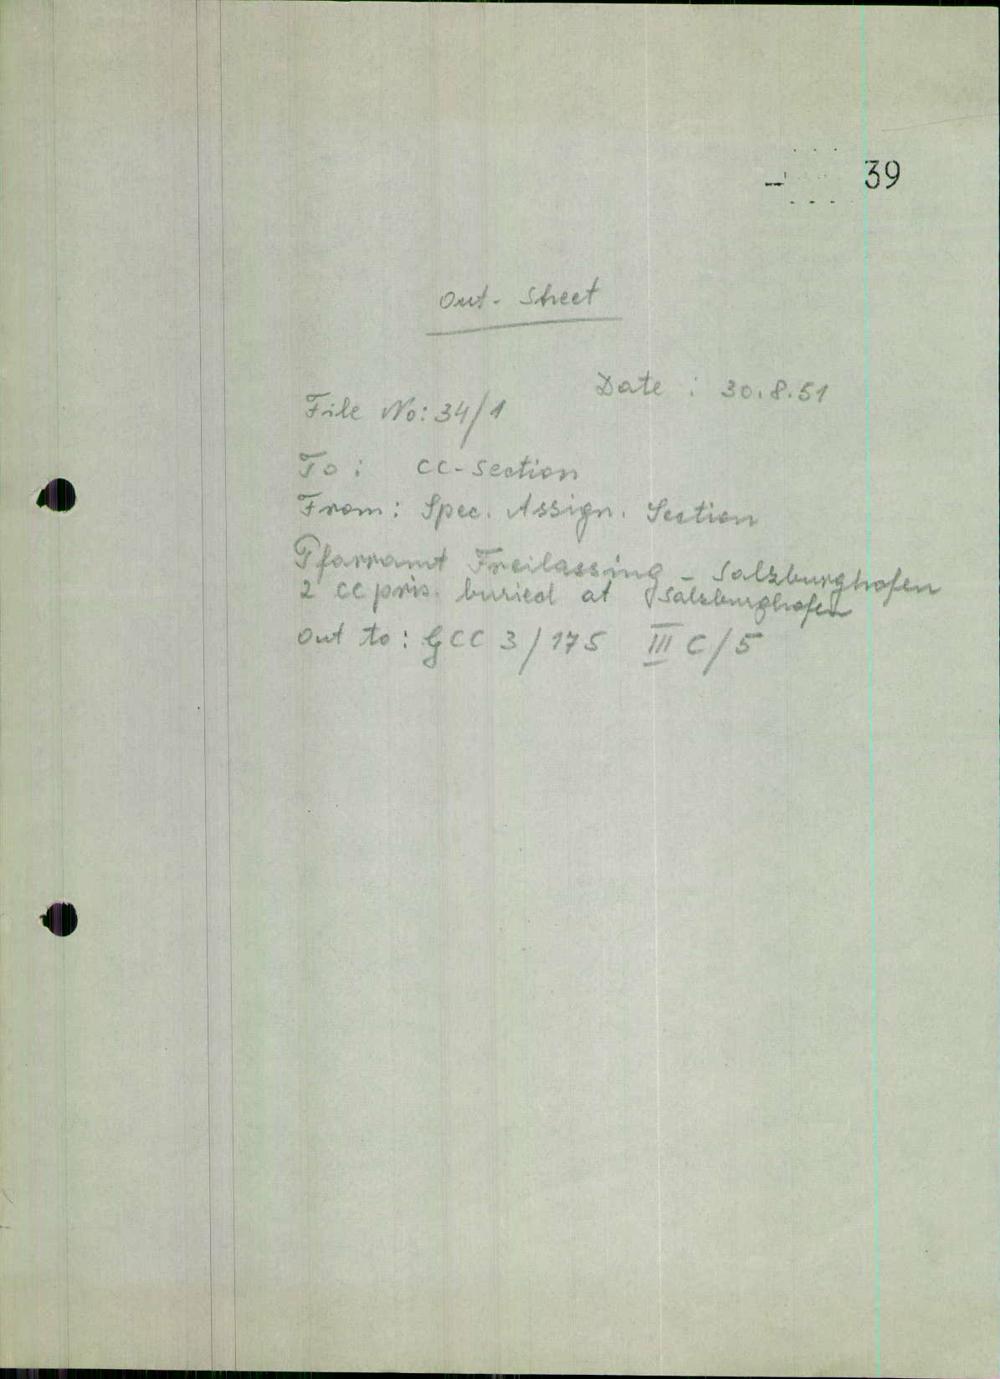 39
Out - Sheet
Date : 30.8.51
File No: 34/1
To : CC-Section
From: Spec. Assign. Section
Pfarramt Freilassing - Salzburghofen
2 CC pris. buried at Salzburghofen
Out to: GCC 3/175 III C/5